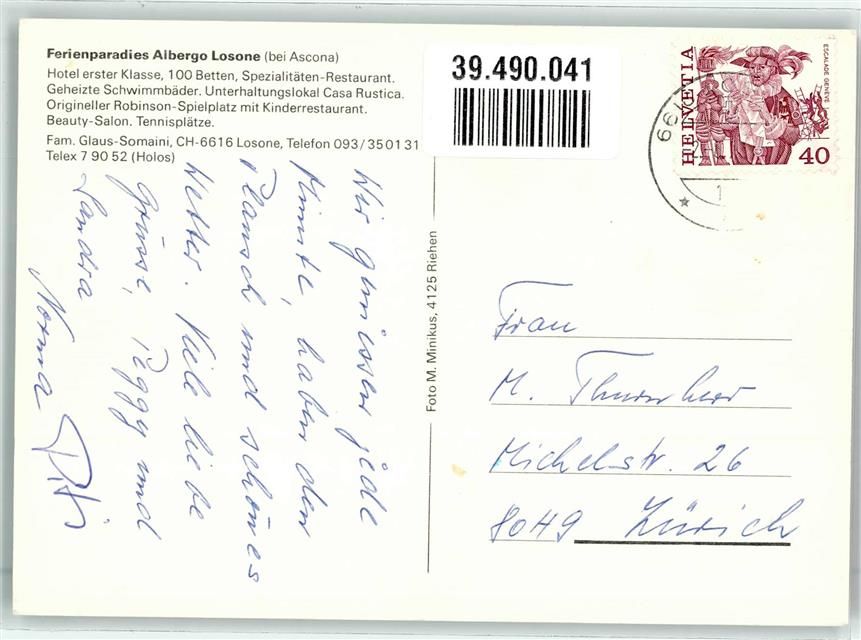 Ferienparadies Albergo Losone (bei Ascona)
Hotel erster Klasse, 100 Betten, Spezialitäten-Restaurant.
Geheizte Schwimmbäder. Unterhaltungslokal Casa Rustica.
Origineller Robinson-Spielplatz mit Kinderrestaurant.
Beauty-Salon. Tennisplätze.
Fam. Glaus-Somaini, CH-6616 Losone, Telefon 093/35 01 31
Telex 7 90 52 (Holos)
39.490.041
HELVETIA
ESCALADE GENÈVE
40
Foto M. Minikus, 4125 Riehen
Wir geniessen jede
Minute, haben den
Plausch und schönes
Wetter. Viele liebe
Grüsse, Peggy und
Sandra
Norma
Frau
M.
Michelstr. 26
8049 Zürich